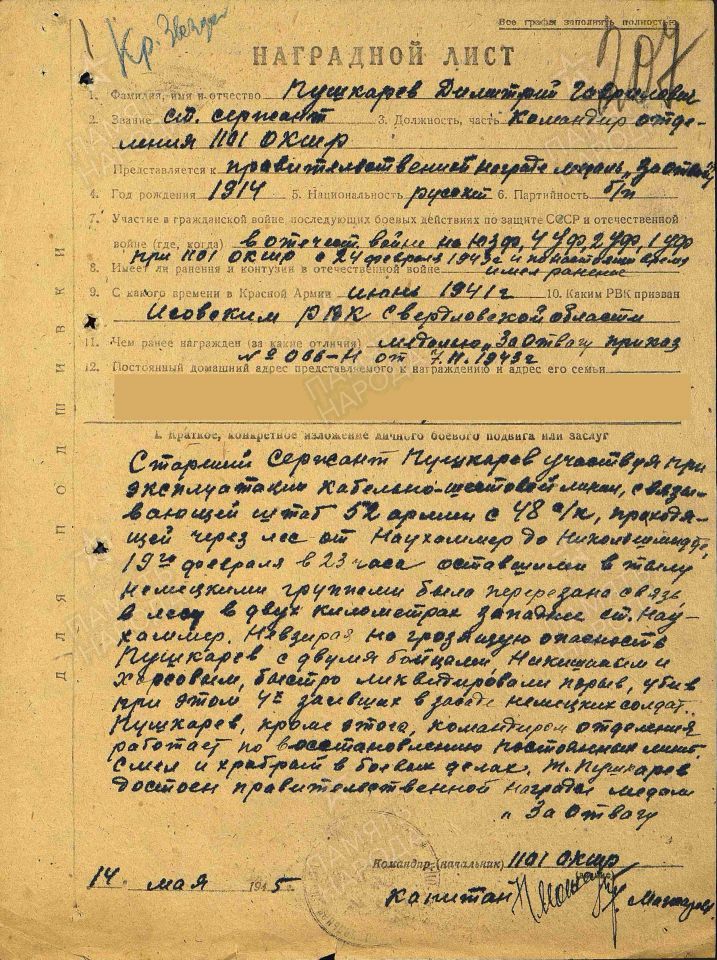 Кр. Звезда
Все графы заполнять полностью
207
НАГРАДНОЙ ЛИСТ
1. Фамилия, имя и отчество Пушкарев Димитрий Гаврилович
2. Звание ст. сержант 3. Должность, часть Командир отде-
ления 1101 ОКШР
Представляется к правительственной награде медаль „За отвагу"
4. Год рождения 1914 5. Национальность русский 6. Партийность б/п
7. Участие в гражданской войне, последующих боевых действиях по защите СССР и отечественной
войне (где, когда) в отечеств. войне на ЮЗФ, 4 УФ, 2 УФ, 1 УФ
при 1101 ОКШР с 24 февраля 1943 г и по настоящ время
8. Имеет ли ранения и контузии в отечественной войне имел ранение
9. С какого времени в Красной Армии июнь 1941 г 10. Каким РВК призван
Исовским РВК Свердловской области
11. Чем ранее награжден (за какие отличия) медалью „За Отвагу приказ
№ 066-Н от 7.11.1943 г
12. Постоянный домашний адрес представляемого к награждению и адрес его семьи
I. Краткое, конкретное изложение личного боевого подвига или заслуг
Старший Сержант Пушкарев участвуя при
эксплуатации кабельно-шестовой линии, связы-
вающей штаб 52 армии с 48 с/к, проходя-
щей через лес от Наухаммер до Никольшмидде,
19го февраля в 23 часа оставшими в тылу
немецкими группами была перерезана связь
в лесу в двух километрах западнее ст. Нау-
хаммер. Невзирая на грозящую опасность
Пушкарев с двумя бойцами и
быстро ликвидировали порыв, убив
при этом 4х засевших в засаде немецких солдат.
Пушкарев, кроме этого, командиром отделения
работает по восстановлению постоянных линий.
Смел и храбрый в боевых делах. Т. Пушкарев
достоен правительственной награды медали
„За Отвагу
Командир (начальник) 1101 ОКШР
14 мая 1945
капитан
ДЛЯ ПОДШИВКИ
ПАМЯТЬ НАРОДА